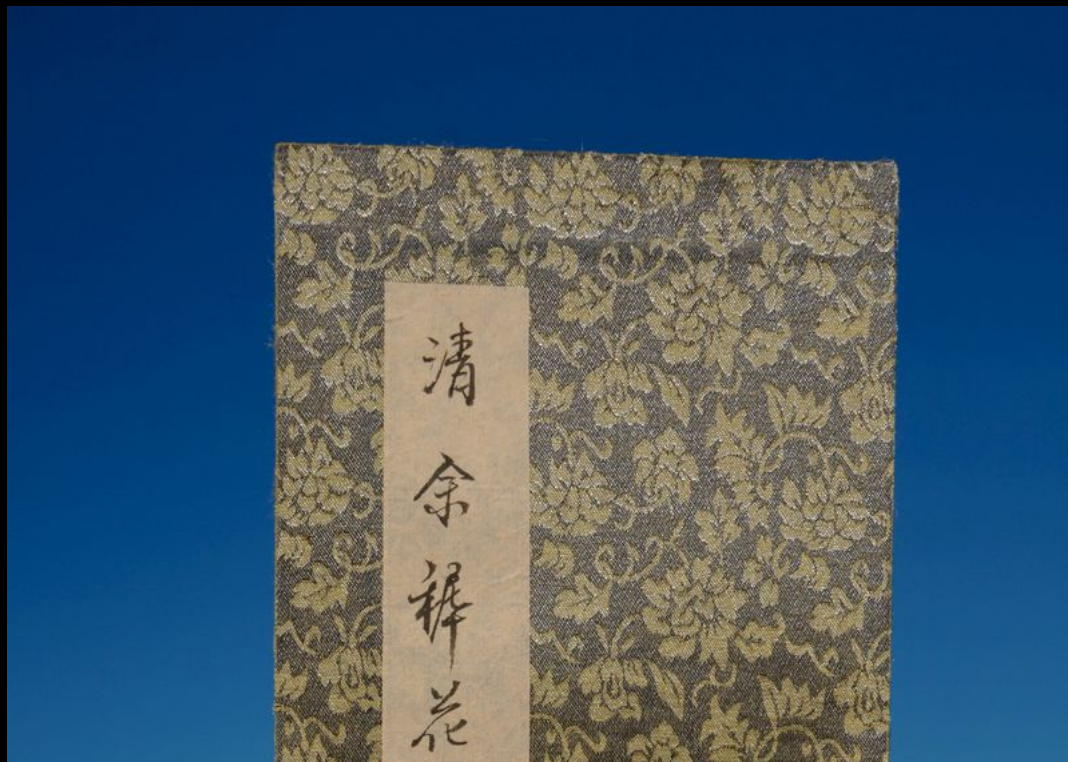 清余穉花